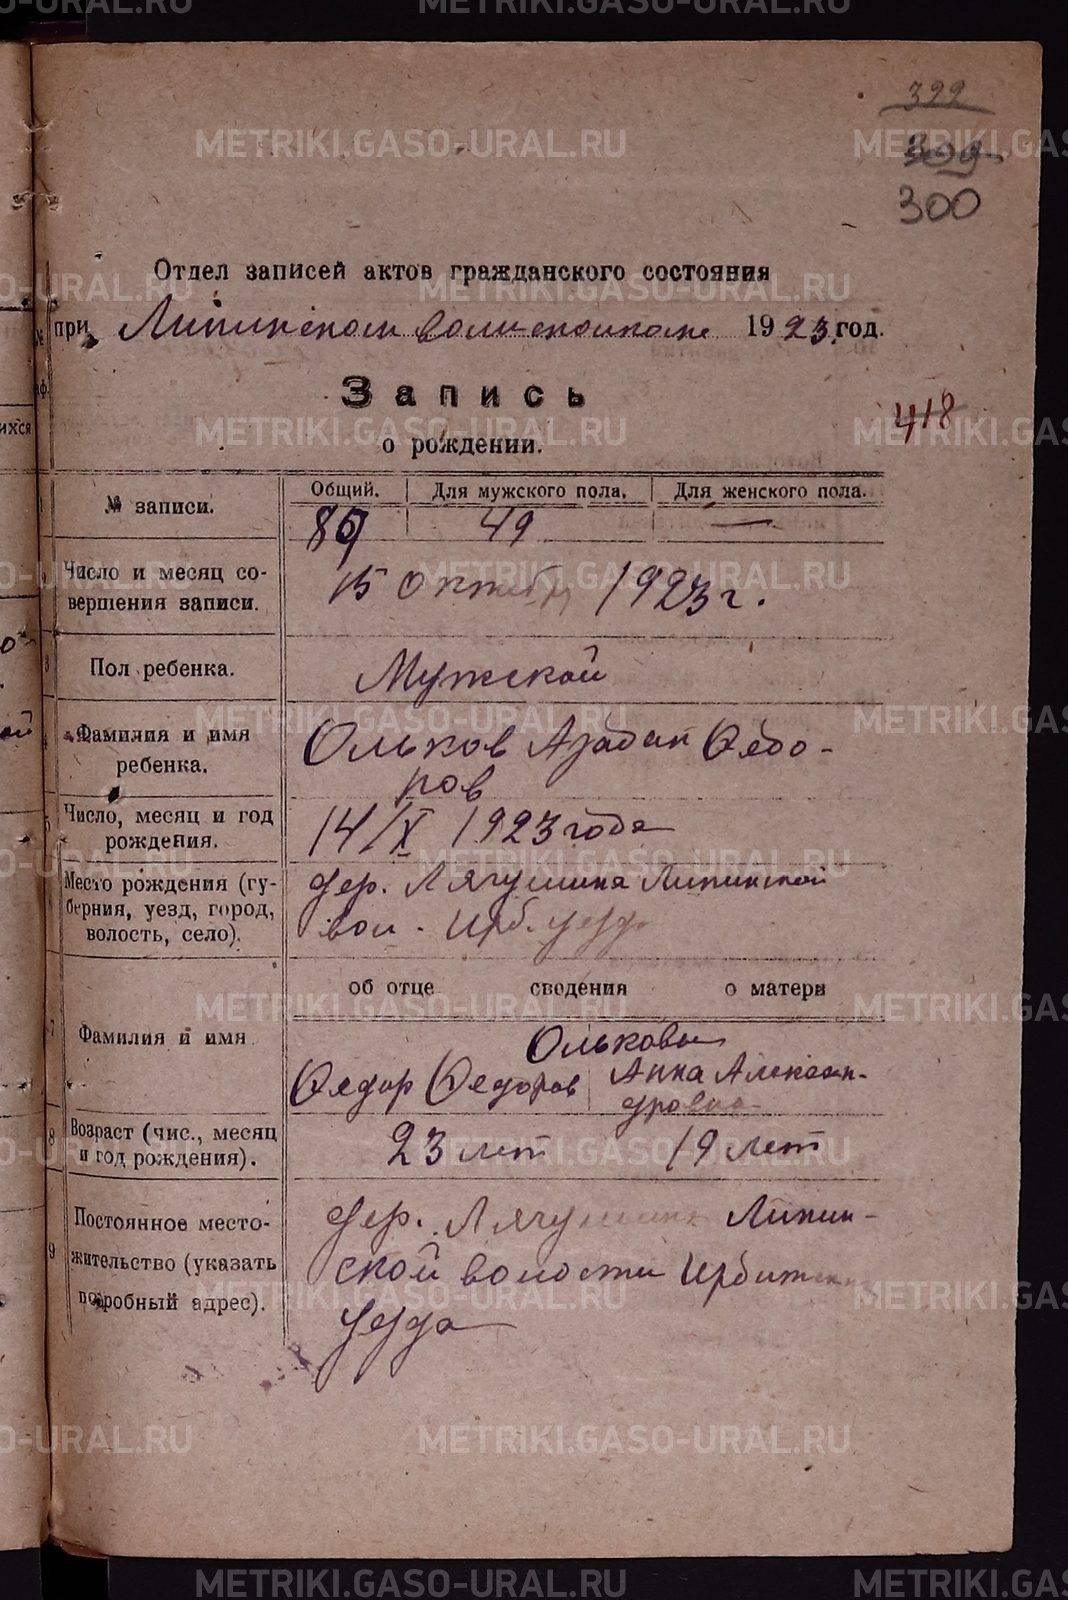 METRIKI.GASO-URAL.RU
322
309
300
Отдел записей актов гражданского состояния
при Липинском волисполкоме 1923 год.
Запись
о рождении.
418
№ записи. Общий. Для мужского пола. Для женского пола.
49 —
Число и месяц со-
вершения записи.
15 октября 1923 г.
Пол ребенка. Мужской
Фамилия и имя
ребенка.
Ольков Азадан Федо-
ров
Число, месяц и год
рождения.
14/X 1923 года
Место рождения (гу-
берния, уезд, город,
волость, село).
дер. Лягушина Липинской
вол. Ирб. уезда
об отце сведения о матери
7 Фамилия и имя
Ольковы
Федор Федоров Анна Алексан-
дровна
8 Возраст (чис., месяц
и год рождения).
23 лет 19 лет
9 Постоянное место-
жительство (указать
подробный адрес).
дер. Лягушина Липин-
ской волости Ирбитского
уезда